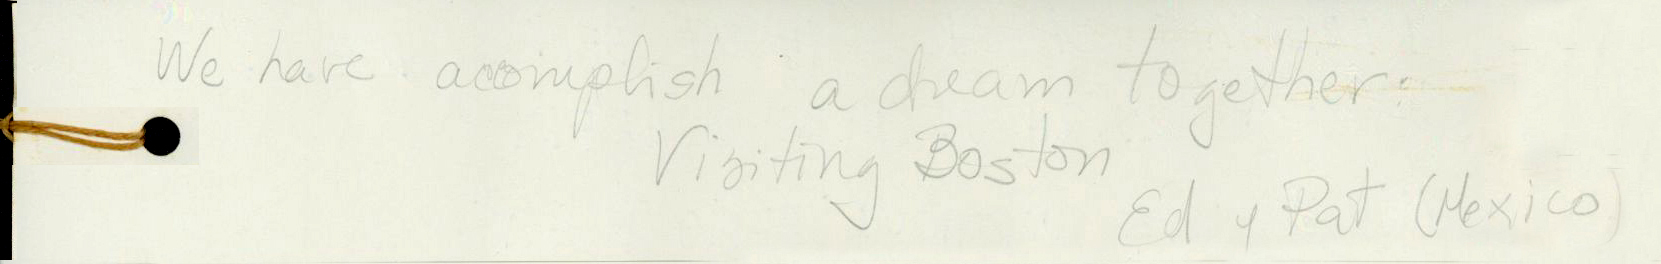 We have accomplish a dream together:
Visiting Boston
Ed y Pat (Mexico)